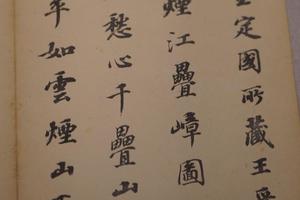 定國所藏王
煙江疊嶂圖
愁心千疊山
平如雲煙山